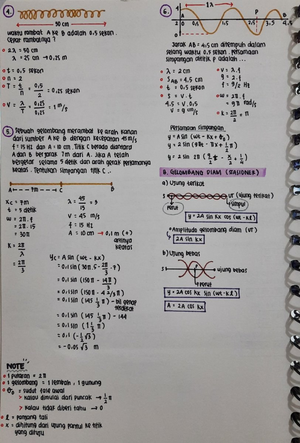 4.
50 cm
waktu rambat A ke B adalah 0,5 sekon.
Cepat rambatnya?
2λ = 50 cm
λ = 25 cm → 0,25 m
t = 0,5 sekon
n = 2
T = t/n = 0,5/2 = 0,25 sekon
V = λ/T = 0,25/0,25 = 1 m/s
5. Sebuah gelombang merambat ke arah kanan
dari sumber A ke B dengan kecepatan 45 m/s
f = 15 Hz dan A = 10 cm. Titik C berada diantara
A dan B berjarak 7m dari A. Jika A telah
bergetar selama 5 detik dan arah gerak pertamanya
keatas. Tentukan simpangan titik C.
A 7m C B
xc = 7m
t = 5 detik
ω = 2π.f
= 2π.15
= 30π
K = 2π/λ
= 2π/3
λ = 45/15 = 3
V = 45 m/s
f = 15 Hz
A = 10 cm → 0,1 m (+)
arahnya
keatas
Yc = A sin (ωt - kx)
= 0,1 sin (30π.5 - 2π/3 .7)
= 0,1 sin (150π - 14π/3)
= 0,1 sin (150π - 4 2/3 π)
= 0,1 sin (145 1/3 π) - bil genap
terdekat
= 0,1 sin (145 1/3 π) - 144
= 0,1 sin (1 1/3 π)
= 0,1 (-1/2 √3)
= -0,05 √3 m
NOTE
1 putaran = 2π
1 gelombang = 1 lembah, 1 gunung
θ₀ = sudut fase awal → 1/2 π
> kalau dimulai dari puncak → 1/2 π
> kalau tidak diberi tahu → 0
l = panjang tali
x = dihitung dari ujung pantul ke titik
yang dituju
6.
1λ
2
0
-2
0,5 1,5 2,5 3,5 4,5
P B
Jarak AB = 4,5 cm ditempuh dalam
selang waktu 0,5 sekon. Persamaan
simpangan dititik P adalah ...
λ = 2 cm
S AB = 4,5 cm
t = 0,5 sekon
S = V . t
4,5 = V . 0,5
V = 9 cm/s
V = λ . f
9 = 2 . f
f = 9/2 Hz
ω = 2π . f
= 9π rad/s
K = 2π/2 = π
Persamaan simpangan:
y = A sin (ωt - kx + θ₀)
y = 2 sin (9πt - πx + 1/2 π)
B. GELOMBANG DIAM (STASIONER)
a) Ujung terikat
UT (ujung terikat)
Perut
simpul
y = 2A sin kx cos (ωt - kl)
Amplitudo gelombang diam (UT)
2A sin kx
b) Ujung bebas
ujung bebas
Perut
y = 2A cos kx sin (ωt - kl)
A = 2A cos kx